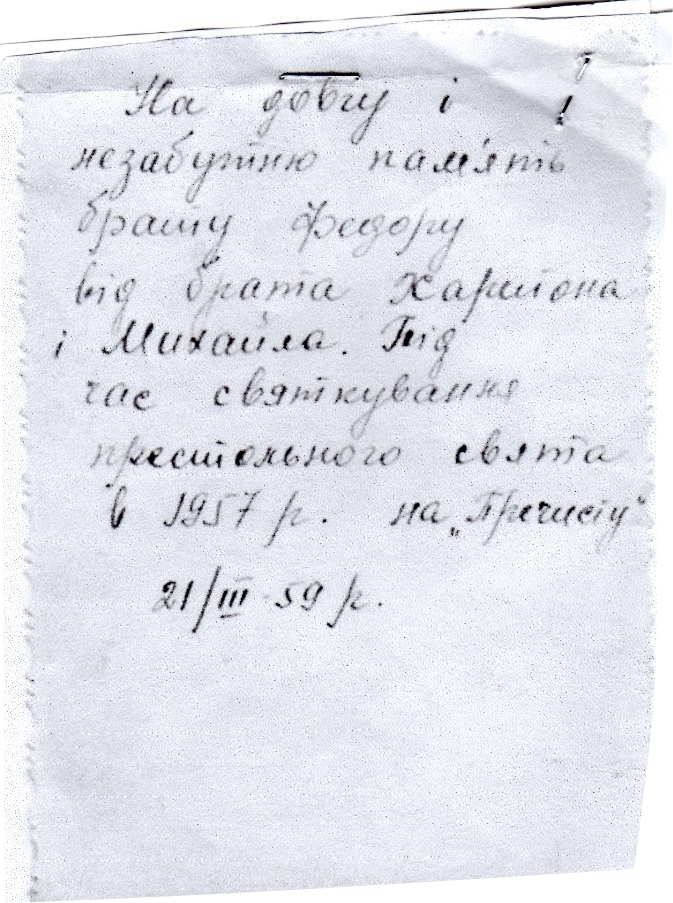 На довгу і
незабутню пам'ять
брату Федору
від брата Харитона
і Михайла. Під
час святкування
престольного свята
в 1957 р. на „Пречисту“
21/III-59 р.